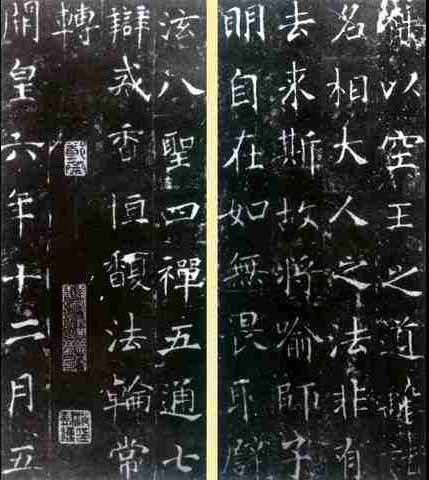 以空王之道離諸
名相大人之法非有
去来斯故將喻師子
明自在如無畏取譬
泫八聖四禪五通七
辯戒香恒馥法輪常
轉
開皇六年十二月五